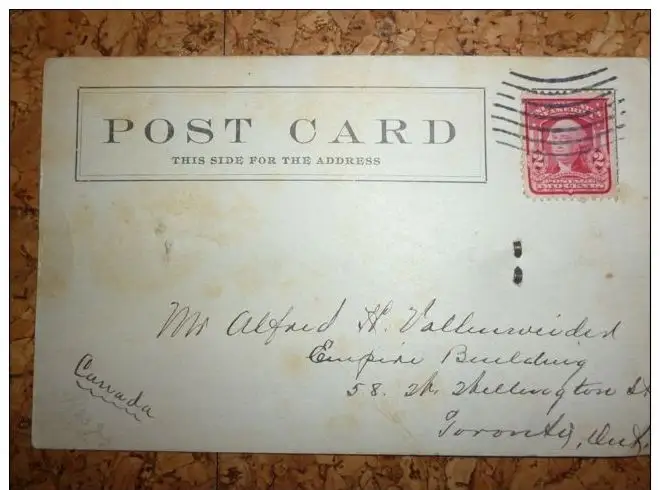 POST CARD
THIS SIDE FOR THE ADDRESS
2 2
POSTAGE
TWO CENTS
Mr Alfred H. Vollenweider
Empire Building
58. W. Wellington St
Toronto, Ont.
Canada